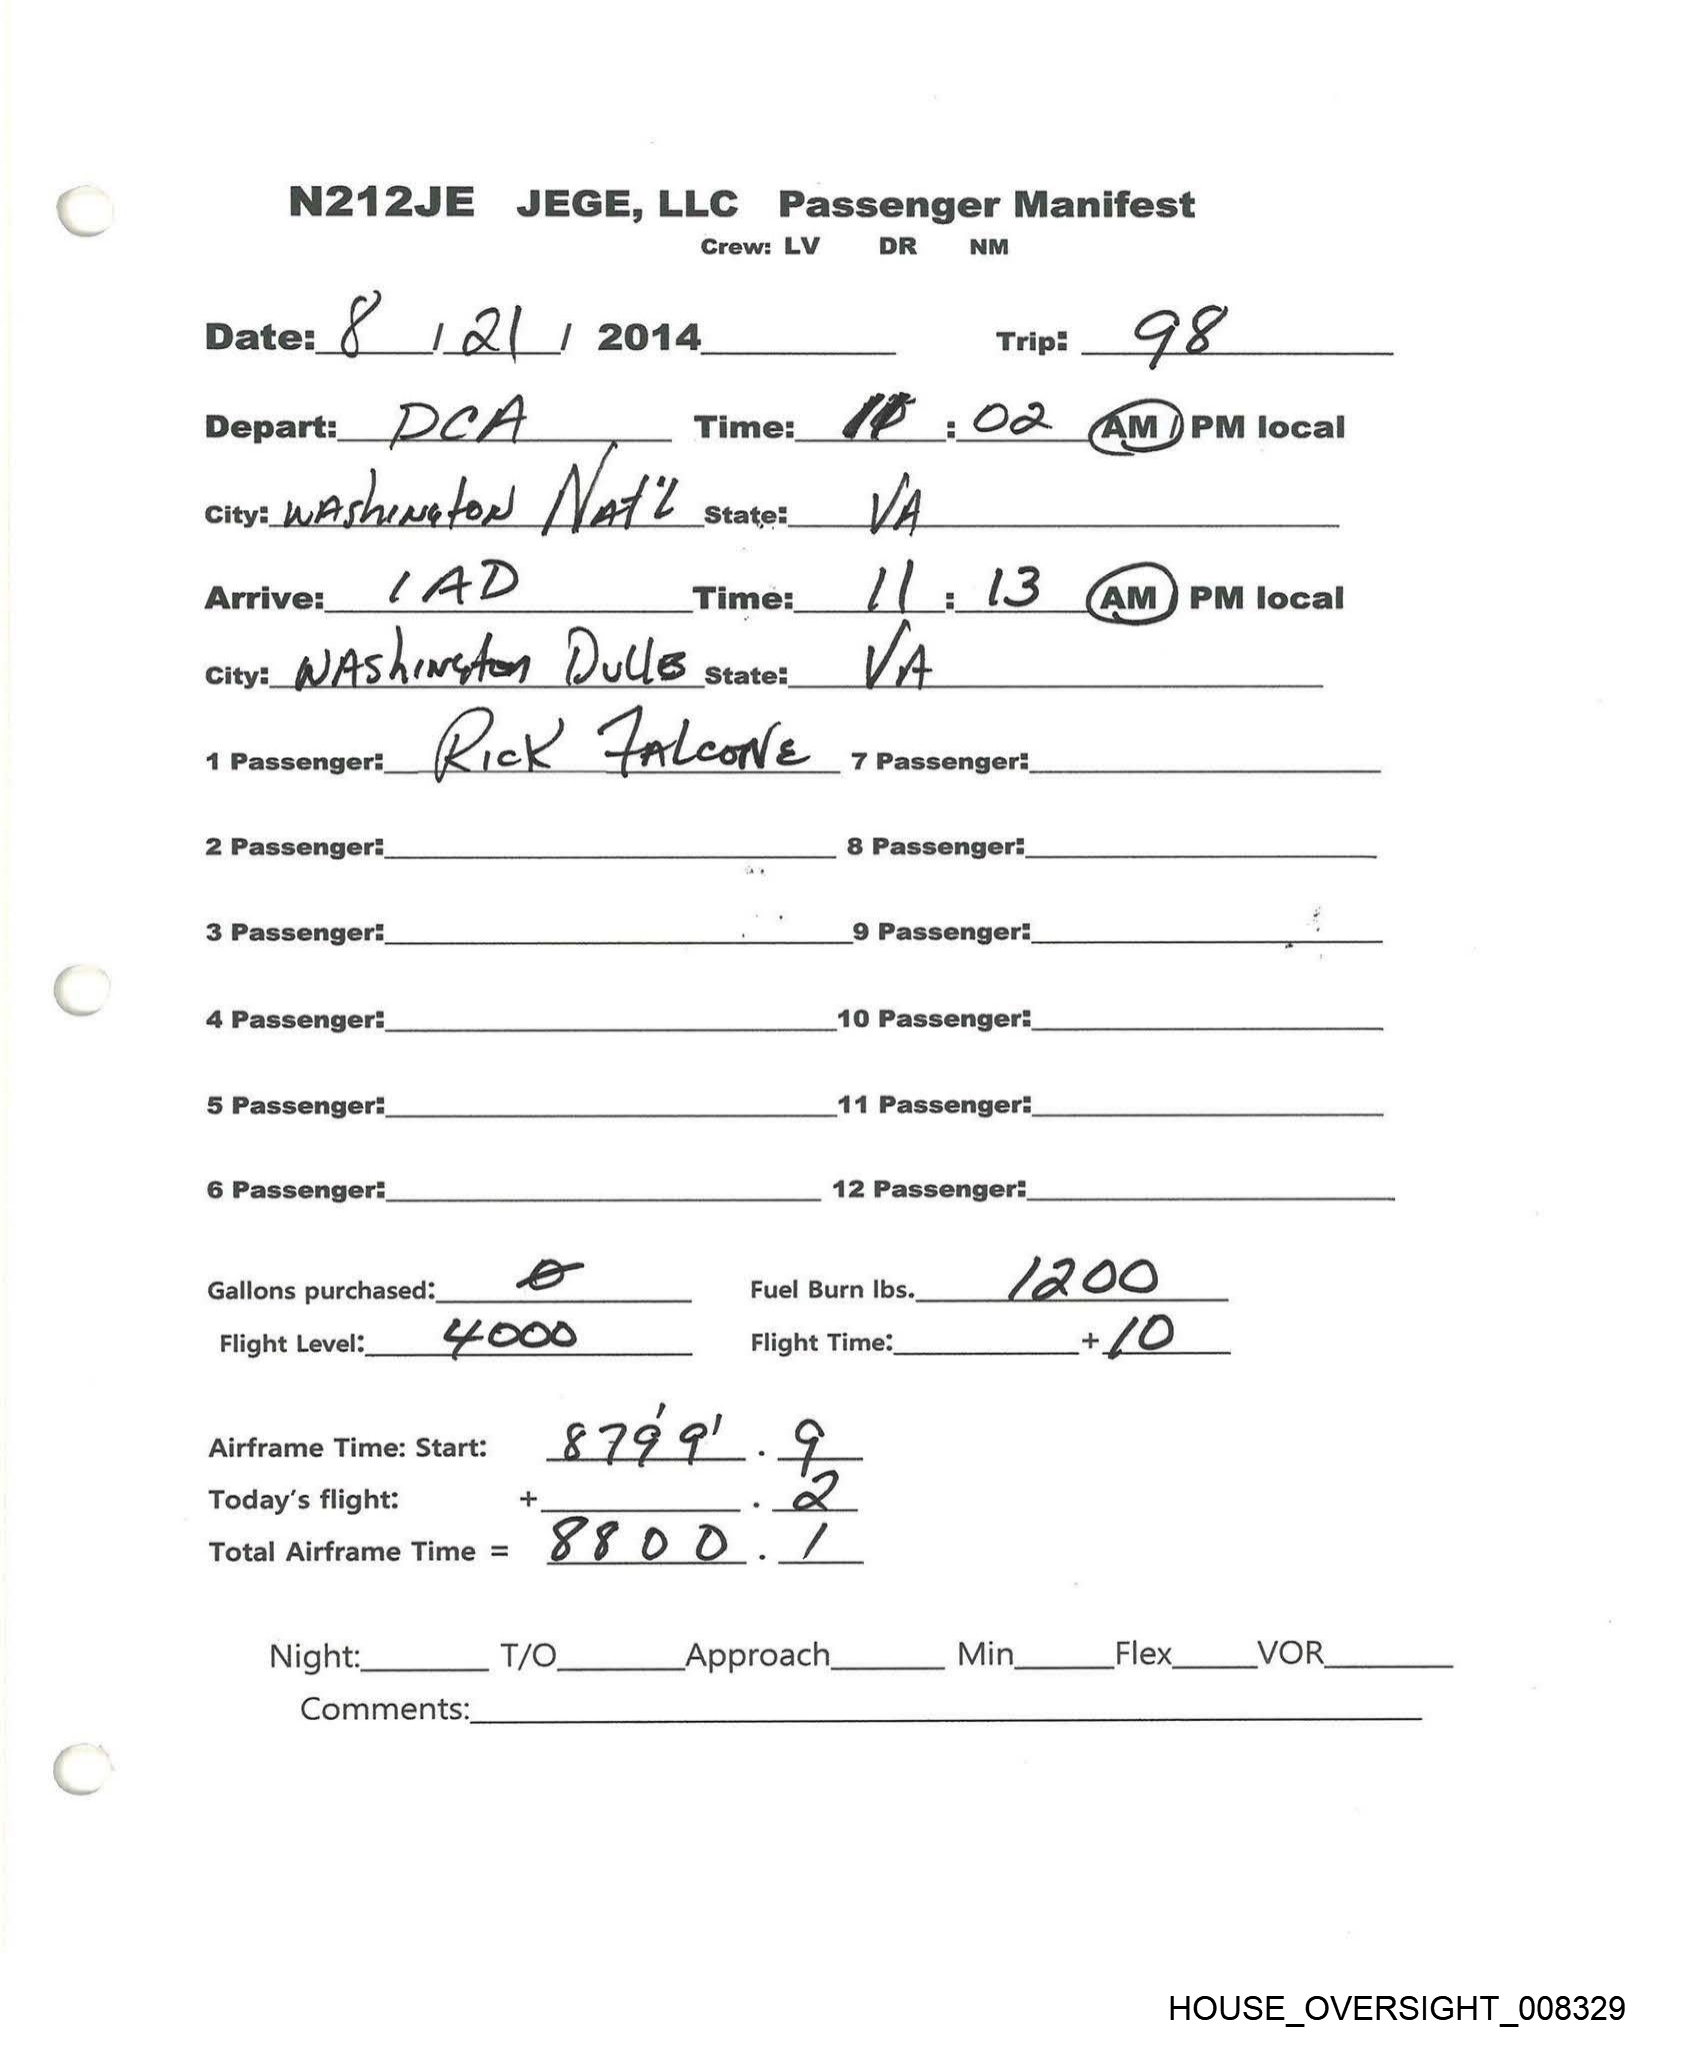 N212JE JEGE, LLC Passenger Manifest
Crew: LV DR NM
Date: 8 / 21 / 2014 Trip: 98
Depart: DCA Time: : 02 AM / PM local
City: WAshINgtoN NAt'l State: VA
Arrive: IAD Time: 11 : 13 AM / PM local
City: WAshINgton Dulles State: VA
1 Passenger: Rick FALCONE 7 Passenger:
2 Passenger: 8 Passenger:
3 Passenger: 9 Passenger:
4 Passenger: 10 Passenger:
5 Passenger: 11 Passenger:
6 Passenger: 12 Passenger:
Gallons purchased: 0 Fuel Burn lbs. 1200
Flight Level: 4000 Flight Time: + 10
Airframe Time: Start: 8799 . 9
Today's flight: + . 2
Total Airframe Time = 8800 . 1
Night: T/O Approach Min Flex VOR
Comments:
HOUSE_OVERSIGHT_008329